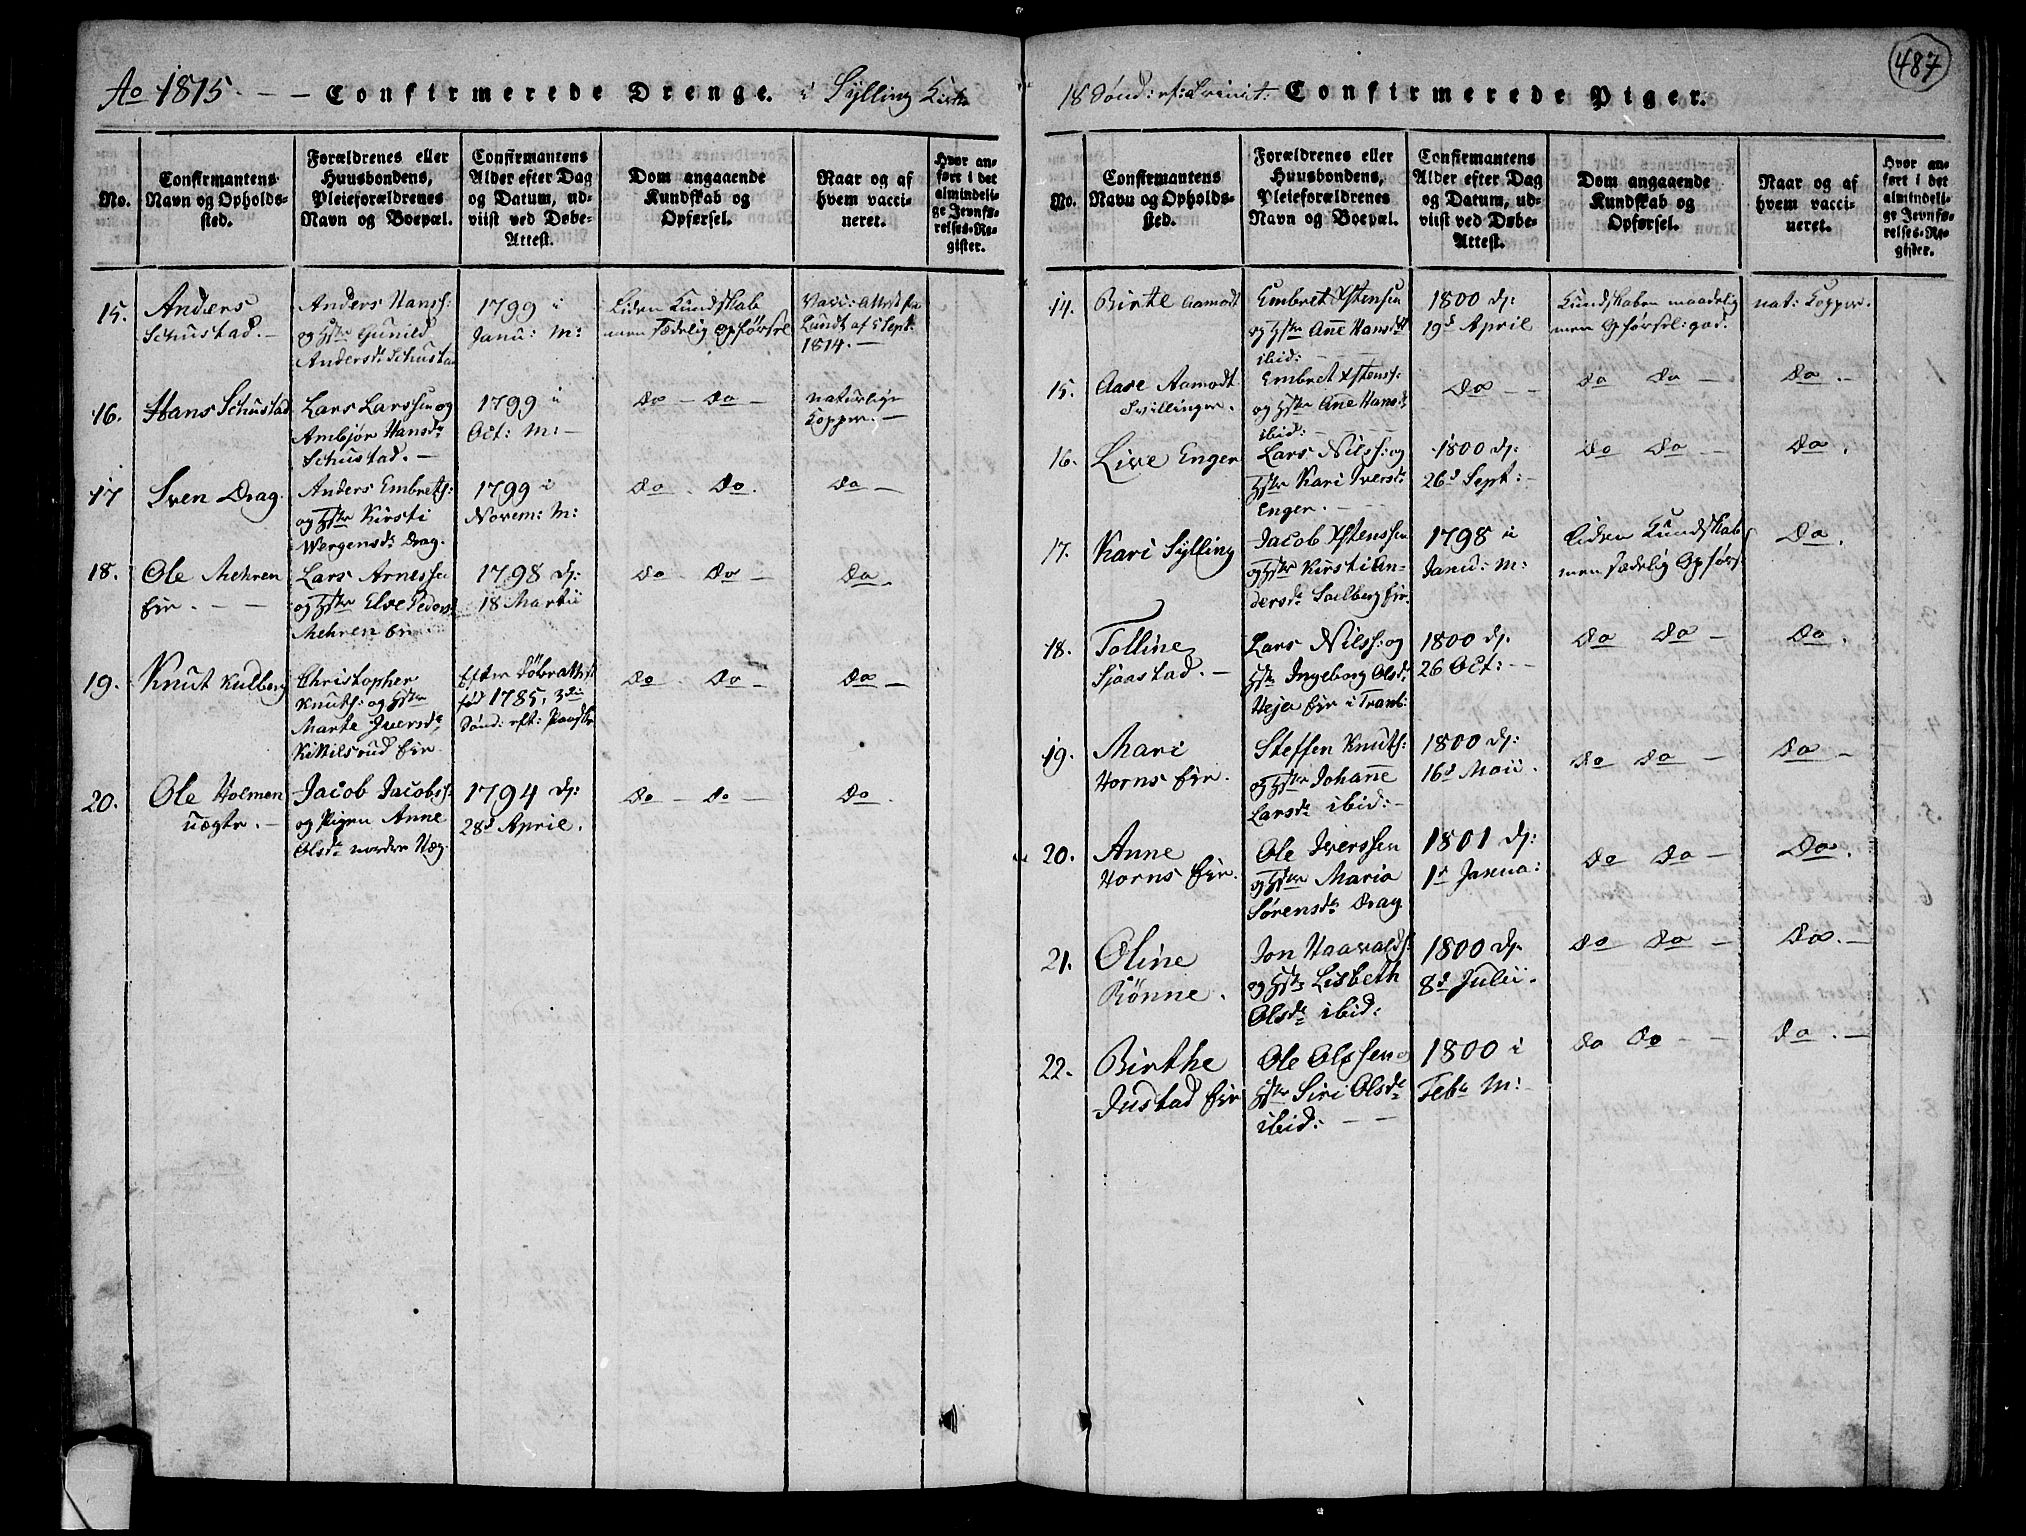 487
Ao 1815. — Confirmerede Drenge. i Sylling Kirke
No.
Confirmantens
Navn og Opholds-
sted.
Forældrenes eller
Huusbondens,
Pleieforældrenes
Navn og Boepæl.
Confirmantens
Alder efter Dag
og Datum, ud-
viist ved Døbe-
Attest.
Dom angaaende
Kundskab og
Opførsel.
Naar og af
hvem vacci-
neret.
Hvor an-
ført i det
almindeli-
ge Jevnfø-
relses-Re-
gister.
15.
Anders
Schustad. —
Anders Hanss:
og Hstr Gunild
Andersd: Schustad
1799 i
Janu: M:
Liden Kundskab
men sædelig Opførsel
Vacc: attest fra
Lundt af 5 Sept:
1814. —
16.
Hans Schustad
Lars Larssen og
Ambjør Hansdr
Schustad. —
1799 i
Oct: M: —
do — do —
naturlige
Kopper. —
17
Sven Drag.
Anders Embrets:
og Hstr Kirsti
Wergensdr Drag.
1799 i
Novem: M:
do. do.
do —
18.
Ole Mehren
Eir. — —
Lars Arnessen
og Hstr Elve Peders:
Mehren Eir
1798 d:
18 Martii
do - do —
do -
19.
Knut Kulberg
Christopher
Knuts: og Hstr
Marte Iversdr
Kittilsrud Eir
Efter Døbeattest
fød 1785, 3die
Sønd: eft: Paaske
do. do —
do —
20.
Ole Holmen
uægte. —
Jacob Jacobss:
og Pigen Anne
Olsdr nordre Hæg.
1794 d:
28d April.
do — do —
do.
18 Sønd: ef: Trinit: Confirmerede Piger.
No.
Confirmantens
Navn og Opholds-
sted.
Forældrenes eller
Huusbondens,
Pleieforældrenes
Navn og Boepæl.
Confirmantens
Alder efter Dag
og Datum, ud-
viist ved Døbe-
Attest.
Dom angaaende
Kundskab og
Opførsel.
Naar og af
hvem vacci-
neret.
Hvor an-
ført i det
almindeli-
ge Jevnfø-
relses-Re-
gister.
14.
Birte Aamodt
Embret Istensen
og Hstr Ane Hansdr
ibid:
1800 d:
19d April
Kundskaben maadelig
men Opførsel: god.
nat: Kopper.
15.
Aase Aamodt
Tvillinger.
Embret Istenss:
og Hstr Ane Hansd:
ibid: —
do —
do do —
do. —
16.
Live Enger
Lars Nilss: og
Hstr Kari Iversd:
Enger. —
1800 d:
26d Sept: —
do do —
do.
17.
Kari Sylling
Jacob Istenssen
og Hstr Kirsti An-
dersdr Solberg Eir.
1798 i
Janu: M:
Liden Kundskab
men sædelig Opførs:
do.
18.
Tolline
Sjaastad. —
Lars Nilss: og
Hstr Ingeborg Olsd:
Heja Eir i Tranb:
1800 d:
26 Oct: --
do do —
do.
19.
Mari
Horns Eir.
Steffen Knuts:
og Hstr Johanne
Larsdr ibid: —
1800 d:
16d Maii.
do do —
do —
20.
Anne
Horns Eir.
Ole Iverssen
og Hstr Maria
Sørensdr Drag
1801 d:
1t Janua:
do do —
do.
21.
Oline
Rønne.
Jon Haavalds:
og Hstr Lisbeth
Olsdr ibid:
1800 d.
8d Julii.
do do —
do. —
22.
Birthe
Justad Eir
Ole Olssen og
Hstr Siri Olsdr
ibid: — —
1800 i
Febr M:
do do - -
do. —